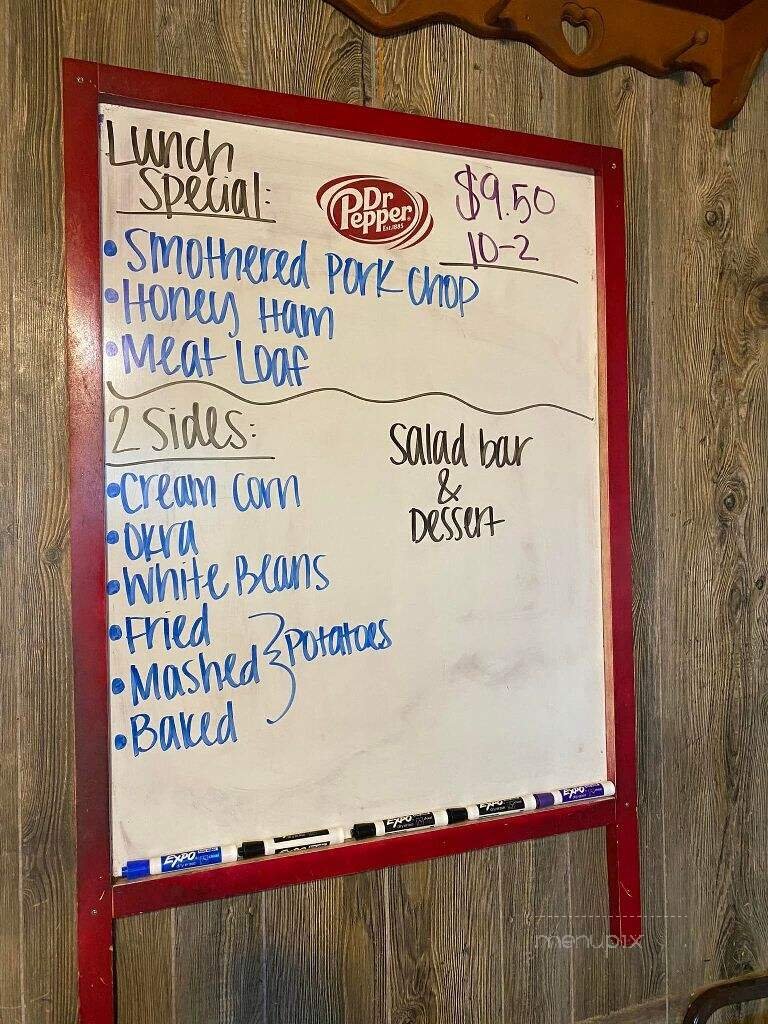 Lunch
Special:
Dr
Pepper
Est. 1885
$9.50
10-2
• Smothered Pork Chop
• Honey Ham
• Meat Loaf
2 Sides:
• Cream Corn
• Okra
• White Beans
• Fried
• Mashed
• Baked
Potatoes
Salad bar
&
Dessert
EXPO
EXPO
EXPO
EXPO
EXPO
menupix